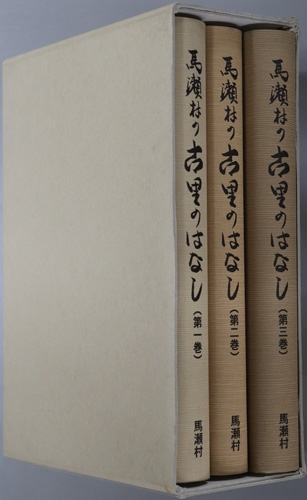 馬瀬村の古里のはなし
(第一巻)
馬瀬村
馬瀬村の古里のはなし
(第二巻)
馬瀬村
馬瀬村の古里のはなし
(第三巻)
馬瀬村